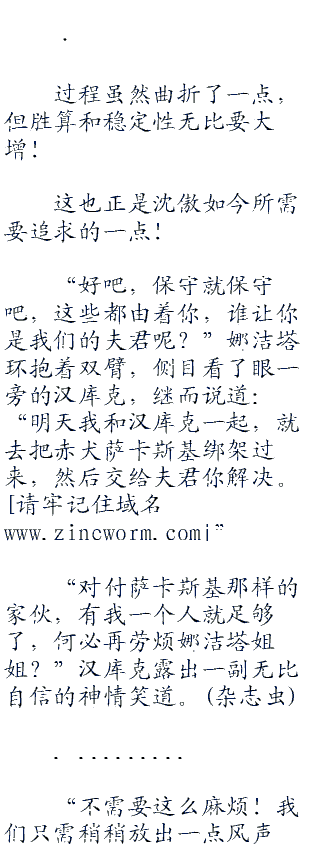 .
过程虽然曲折了一点，
但胜算和稳定性无比要大
增！
这也正是沈傲如今所需
要追求的一点！
“好吧，保守就保守
吧，这些都由着你，谁让你
是我们的夫君呢？”娜洁塔
环抱着双臂，侧目看了眼一
旁的汉库克，继而说道：
“明天我和汉库克一起，就
去把赤犬萨卡斯基绑架过
来，然后交给夫君你解决。
[请牢记住域名
www.zincworm.com|”
“对付萨卡斯基那样的
家伙，有我一个人就足够
了，何必再劳烦娜洁塔姐
姐？”汉库克露出一副无比
自信的神情笑道。(杂志虫)
. .........
“不需要这么麻烦！我
们只需稍稍放出一点风声